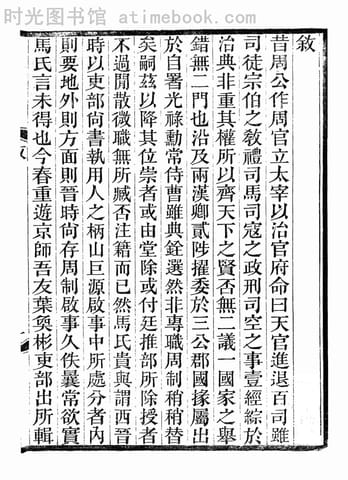 时光图书馆 - www.atimebook.com
敘
昔周公作周官立太宰以治官府命曰天官進退百司雖
司徒宗伯之敎禮司馬司寇之政刑司空之事壹經綜於
治典非重其權所以齊天下之賢否無二議一國家之舉
錯無二門也沿及兩漢卿貳陟擢委於三公郡國掾屬出
於自署光祿勳常侍曹雖典銓選然非專職周制稍稍替
矣嗣茲以降其位崇者或由堂除或付廷推部所除授者
不過閒散微職無所臧否注籍而已然馬氏貴與謂西晉
時以吏部尙書執用人之柄山巨源啟事中所處分者內
則要地外則方面則晉時尙存周制啟事久佚曩常欲實
馬氏言未得也今春重遊京師吾友葉奐彬吏部出所輯